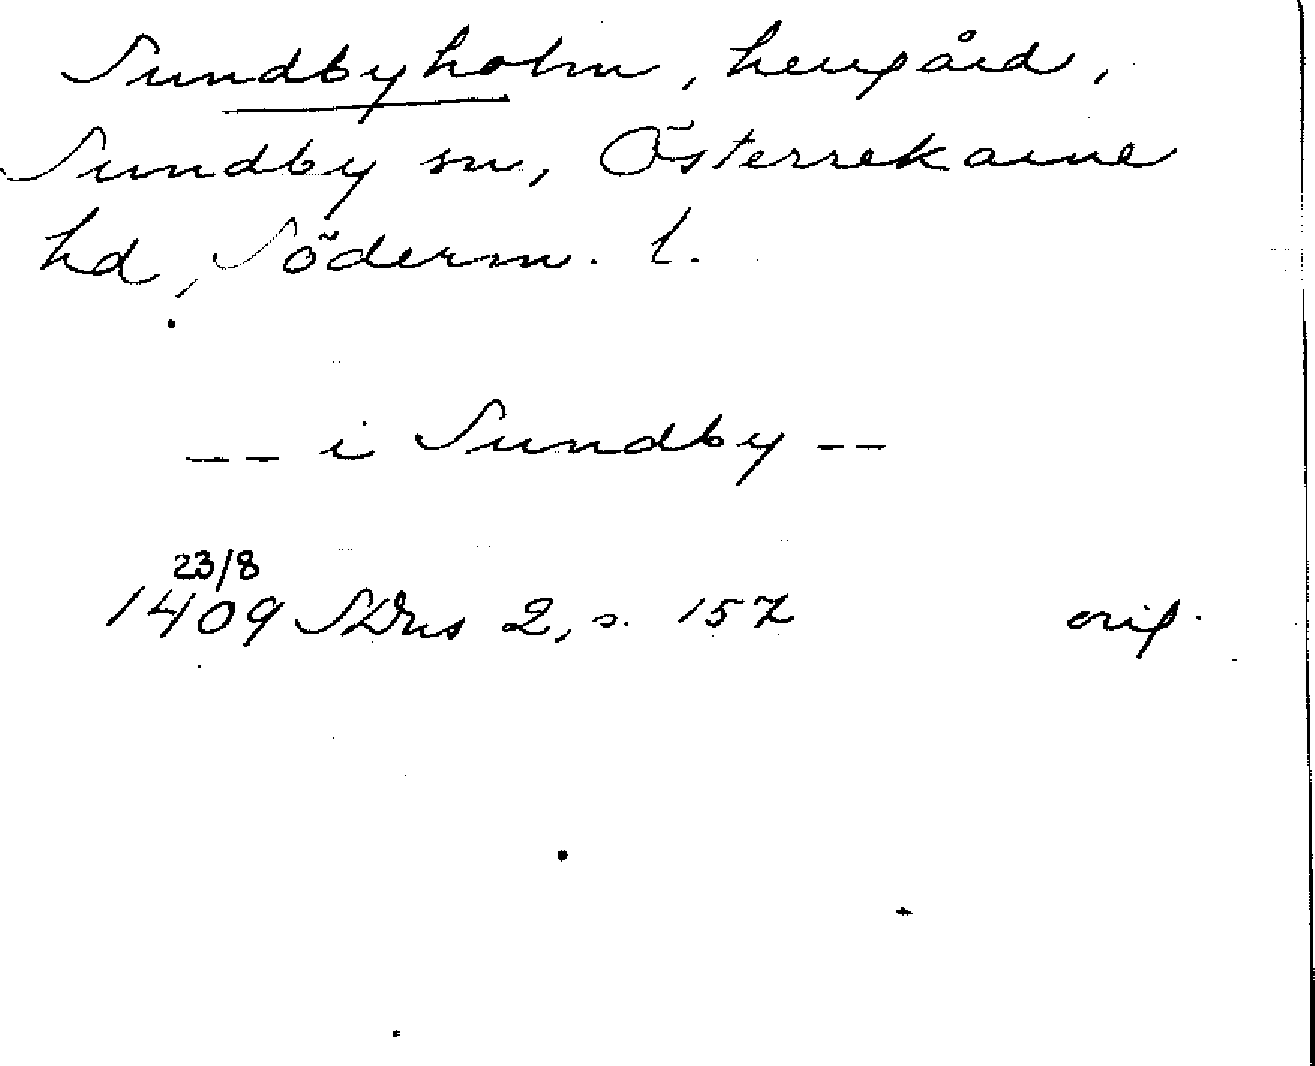 Sundbyholm, herrgård,
Sundby sn, Österrekarne
hd, Söderm. l.
-- i Sundby --
23/8
1409 SDns 2, s. 157 orig.